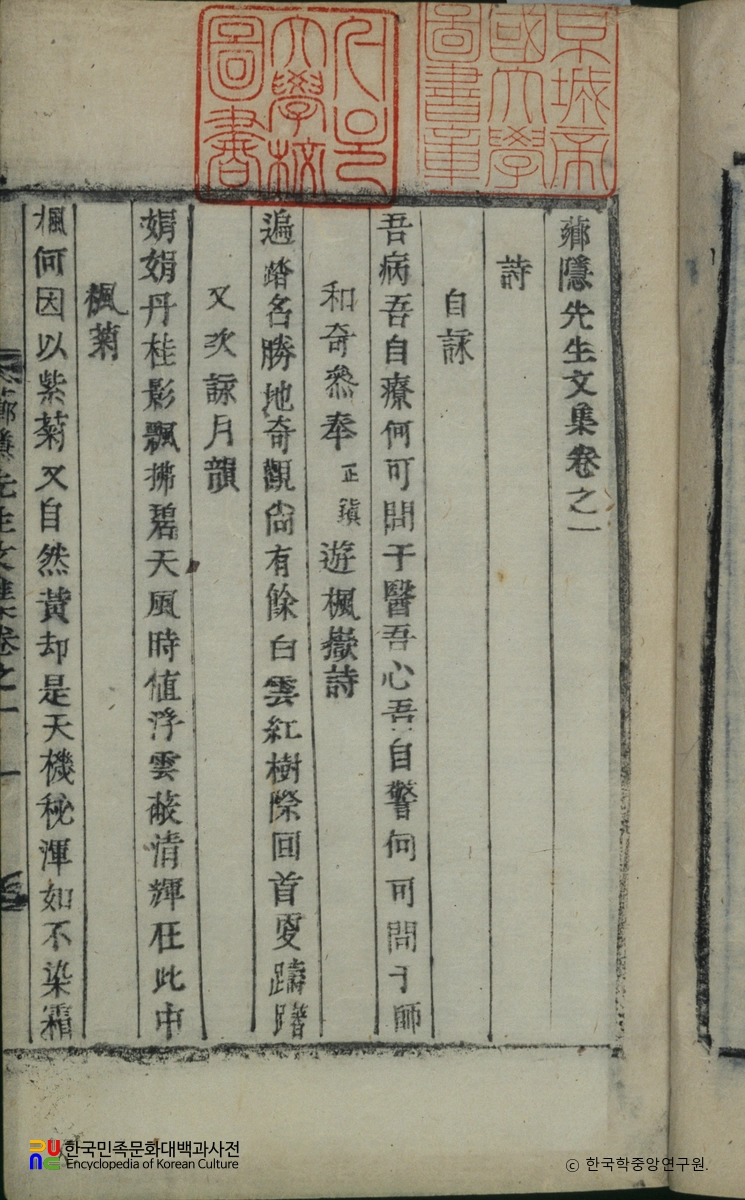 薌隱先生文集卷之一
詩
自詠
吾病吾自療何可問于醫吾心吾自警何可問于師
和奇叅奉正鎭遊楓嶽詩
遍踏名勝地奇觀尙有餘白雲紅樹際回首更躊躇
又次詠月韻
娟娟丹桂影飄拂碧天風時値浮雲蔽淸輝在此中
楓菊
楓何因以紫菊又自然黃却是天機秘渾如不染霜
先生文集卷之一 一
京城帝
國大學
圖書章
大學校
圖書
한국민족문화대백과사전
Encyclopedia of Korean Culture
© 한국학중앙연구원.